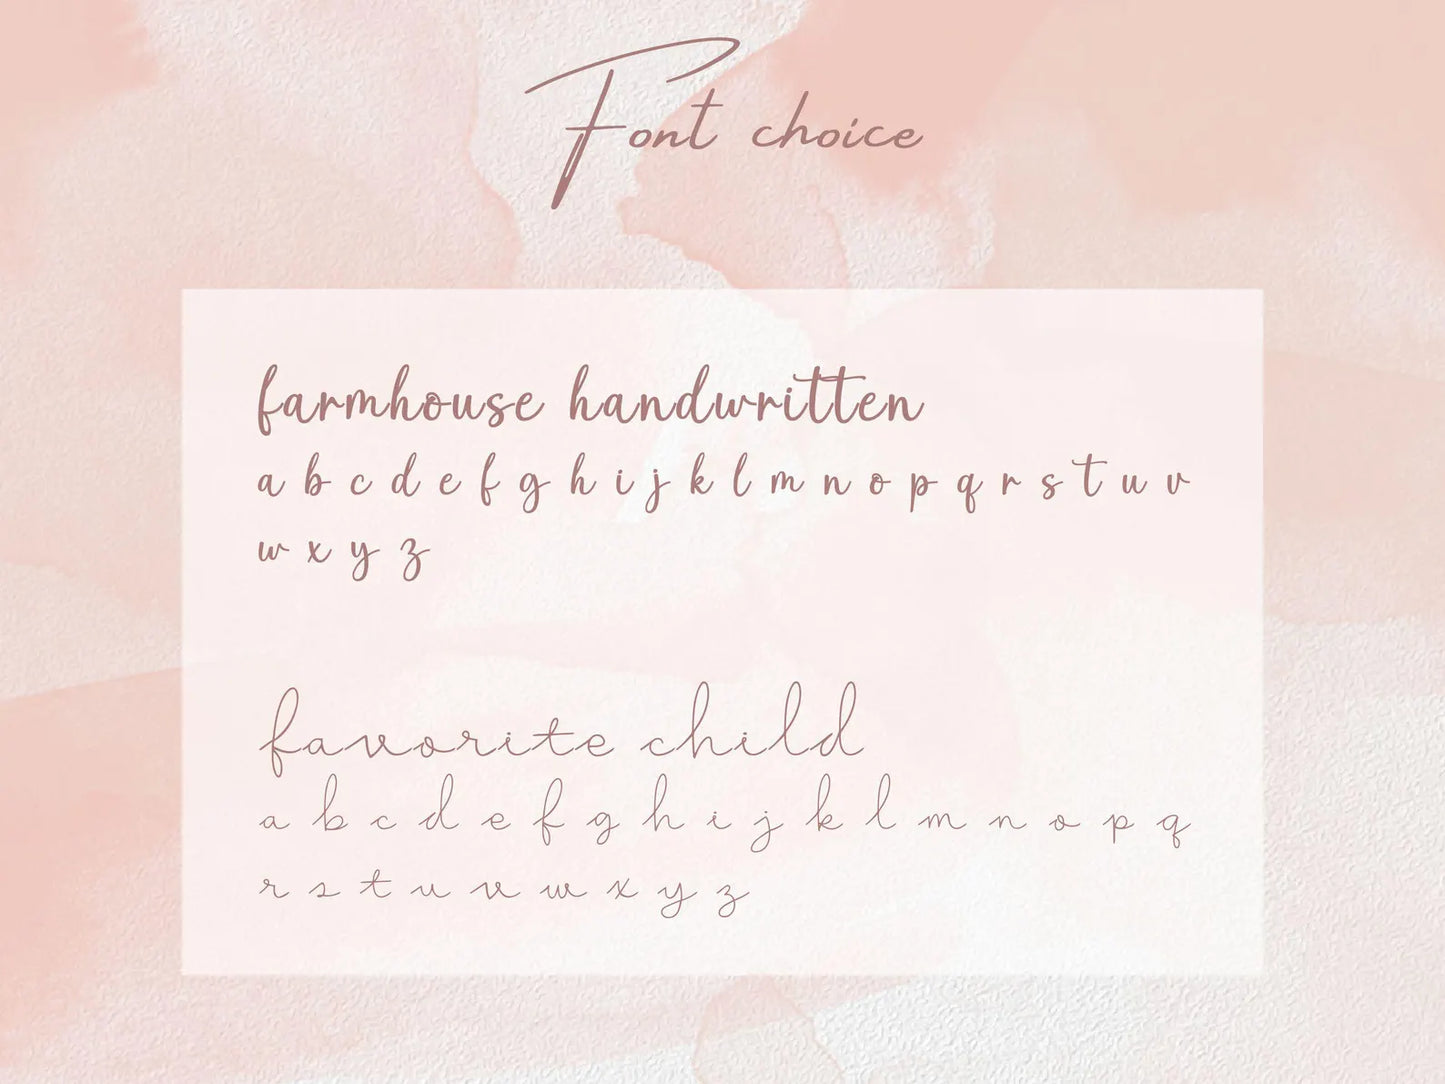 Font choice
farmhouse handwritten
a b c d e f g h i j k l m n o p q r s t u v
w x y z
favorite child
a b c d e f g h i j k l m n o p q
r s t u v w x y z